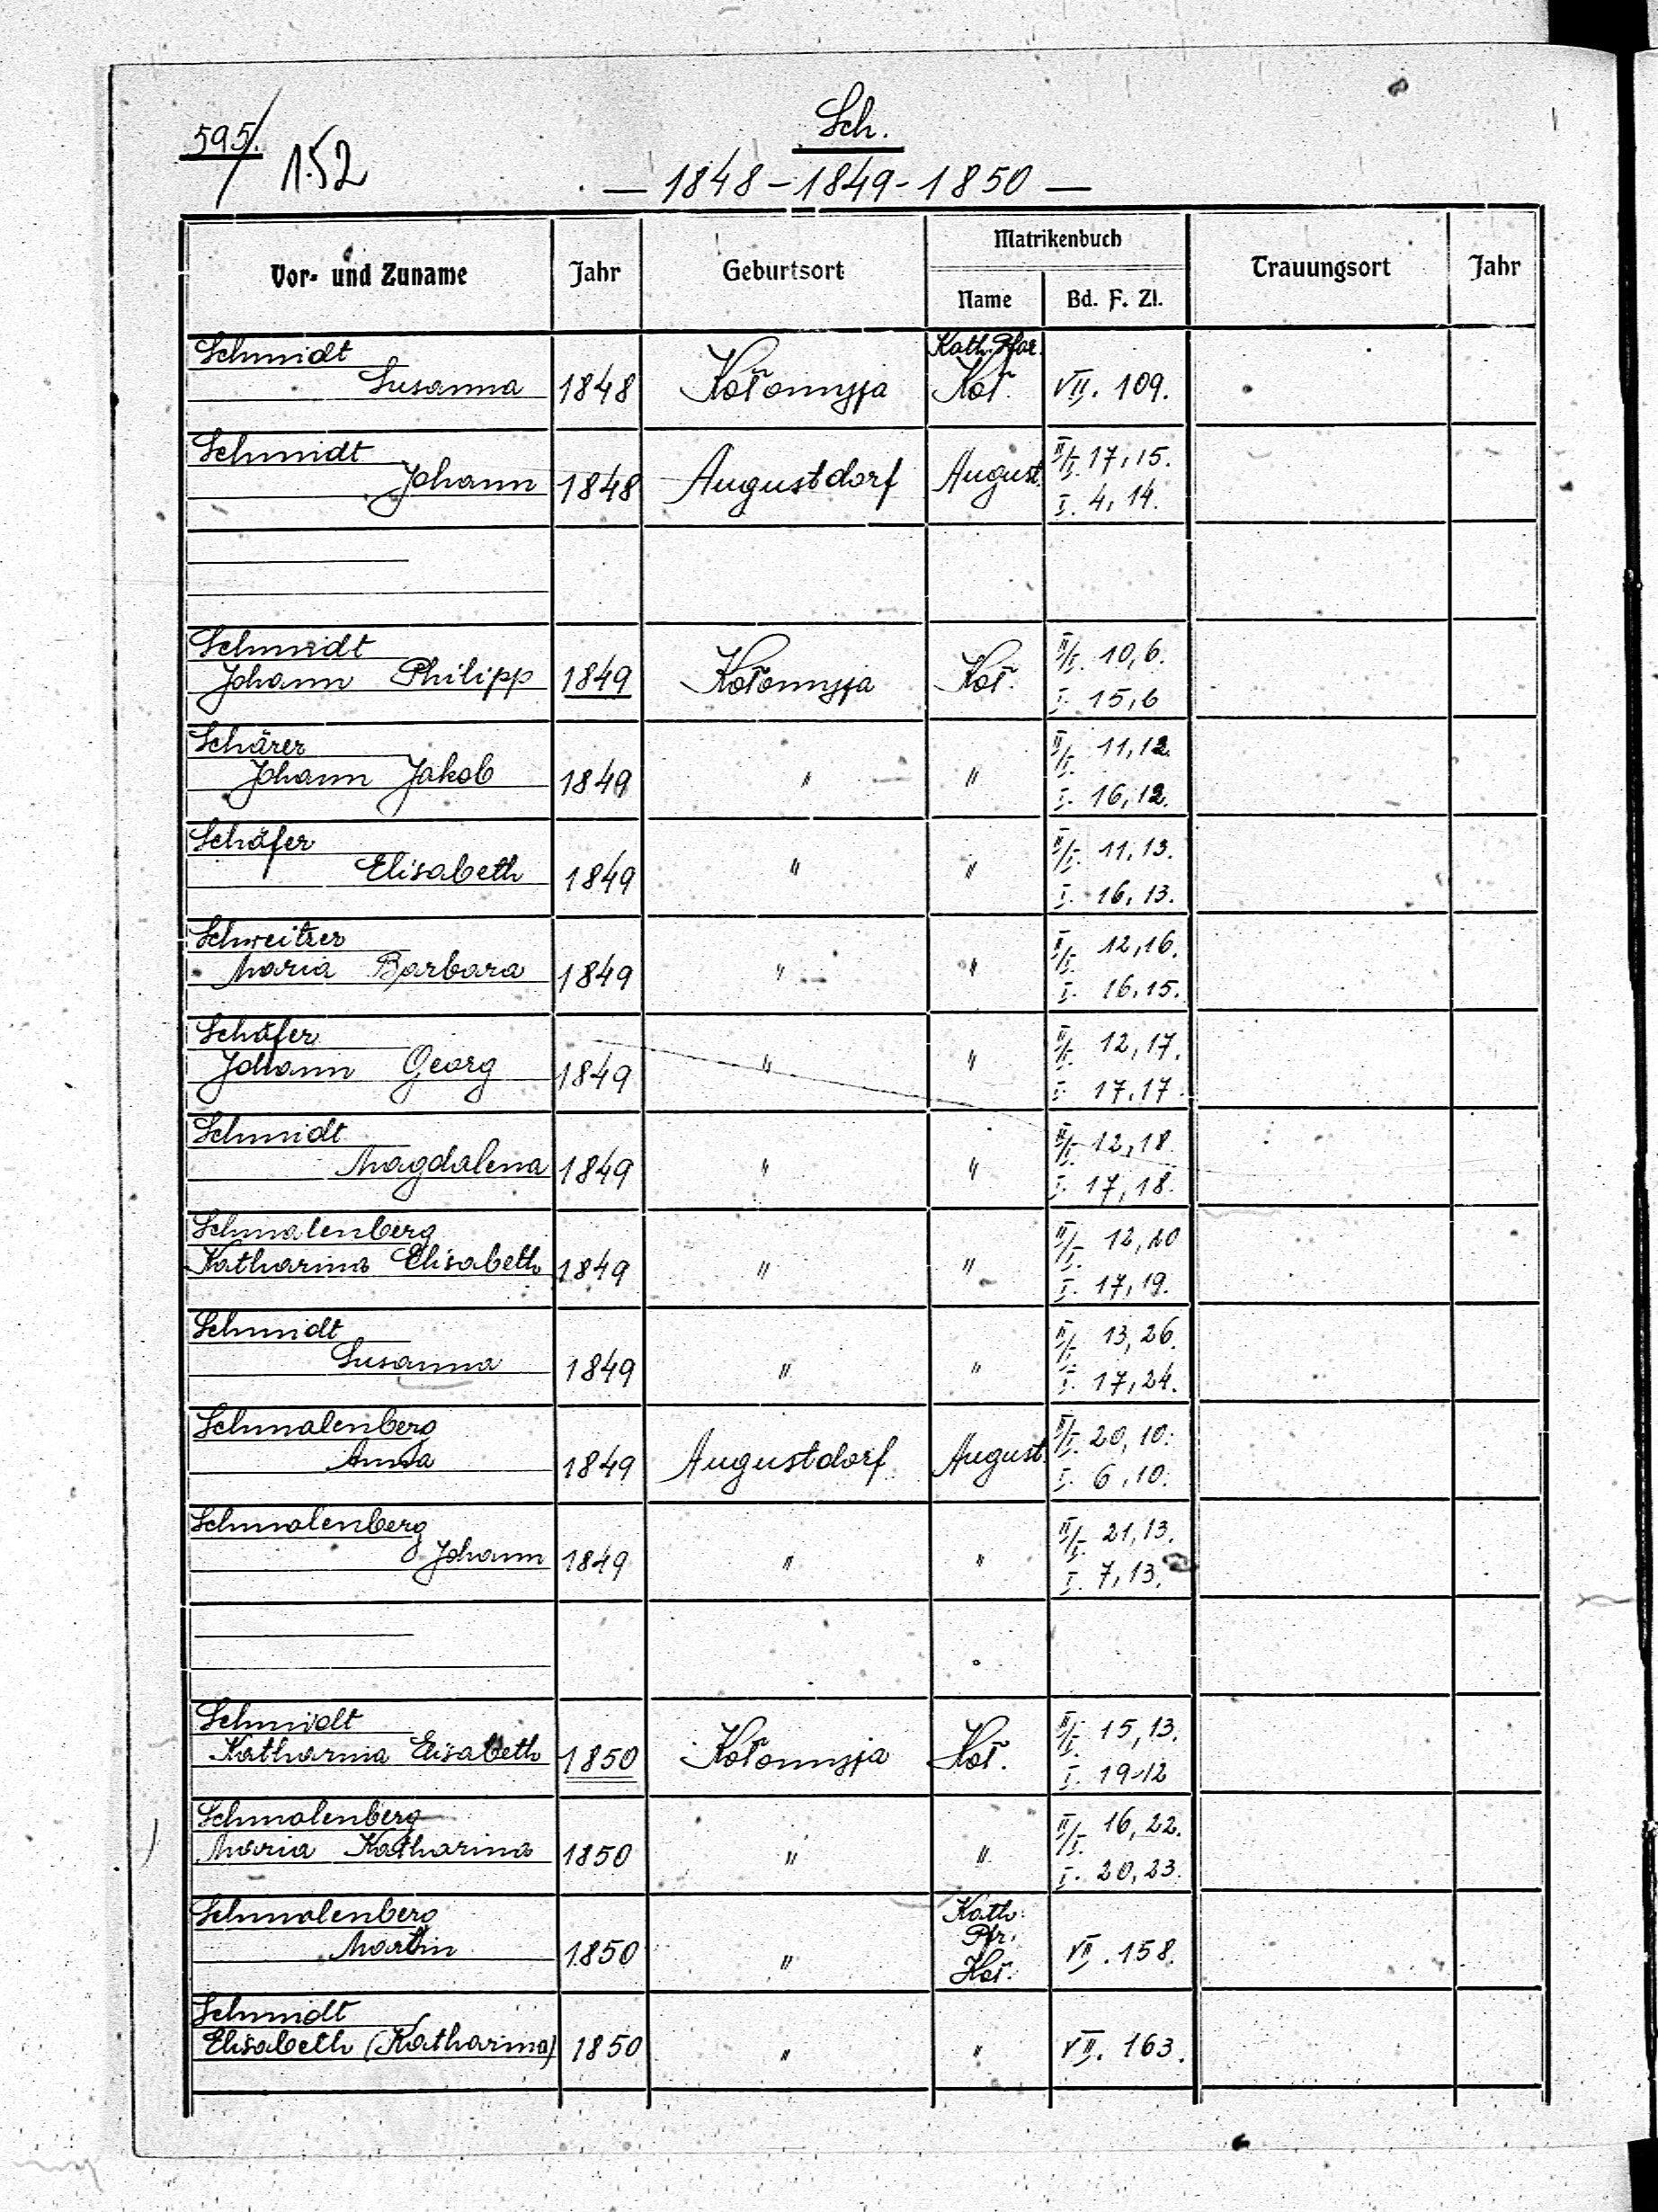 595/.
152
Sch.
— 1848-1849-1850 —
Vor- und Zuname Jahr Geburtsort Matrikenbuch Trauungsort Jahr
Name Bd. F. Zl.
Schmidt Kath. Pfar.
Susanna 1848 Kołomyja Koł. VII. 109.
Schmidt II/I. 17,15.
Johann 1848 Augustdorf August.
I. 4, 14.
Schmidt II/I. 10,6.
Johann Philipp 1849 Kołomyja Koł.
I. 15,6
Schärer II/I. 11,12.
Johann Jakob 1849 " "
I. 16,12.
Schäfer II/I. 11,13.
Elisabeth 1849 " "
I. 16,13.
Schweitzer II/I. 12,16.
Maria Barbara 1849 " "
I. 16,15.
Schäfer II/I. 12,17.
Johann Georg 1849 " "
I. 17,17.
Schmidt II/I. 12,18.
Magdalena 1849 " "
I. 17,18.
Schmalenberg II/I. 12,20
Katharina Elisabeth 1849 " "
I. 17,19.
Schmidt II/I. 13,26.
Susanna 1849 " "
I. 17,24.
Schmalenberg II/I. 20,10.
Anna 1849 Augustdorf August.
I. 6,10.
Schmalenberg II/I. 21,13.
Johann 1849 " "
I. 7,13.
Schmidt II/I. 15,13.
Katharina Elisabeth 1850 Kołomyja Koł.
I. 19-12
Schmalenberg II/I. 16,22.
Maria Katharina 1850 " "
I. 20,23.
Schmalenberg Kath.
Martin 1850 " Pfr. VII. 158.
Koł.
Schmidt
Elisabeth (Katharina) 1850 " " VII. 163.